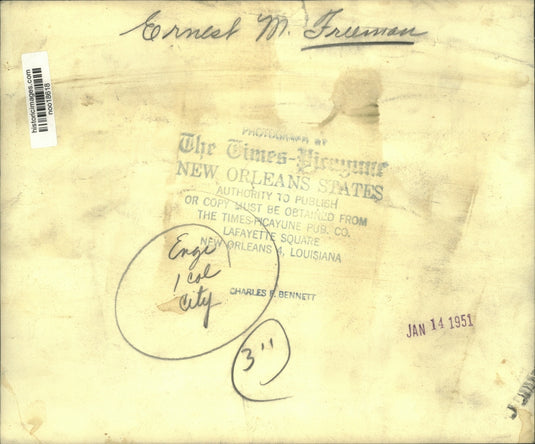 Ernest M. Freeman
historicimages.com
noo18618
PHOTOGRAPH BY
The Times-Picayune
NEW ORLEANS STATES
AUTHORITY TO PUBLISH
OR COPY MUST BE OBTAINED FROM
THE TIMES-PICAYUNE PUB. CO.
LAFAYETTE SQUARE
NEW ORLEANS 4, LOUISIANA
Engr
1 col
City
CHARLES F. BENNETT
3"
JAN 14 1951